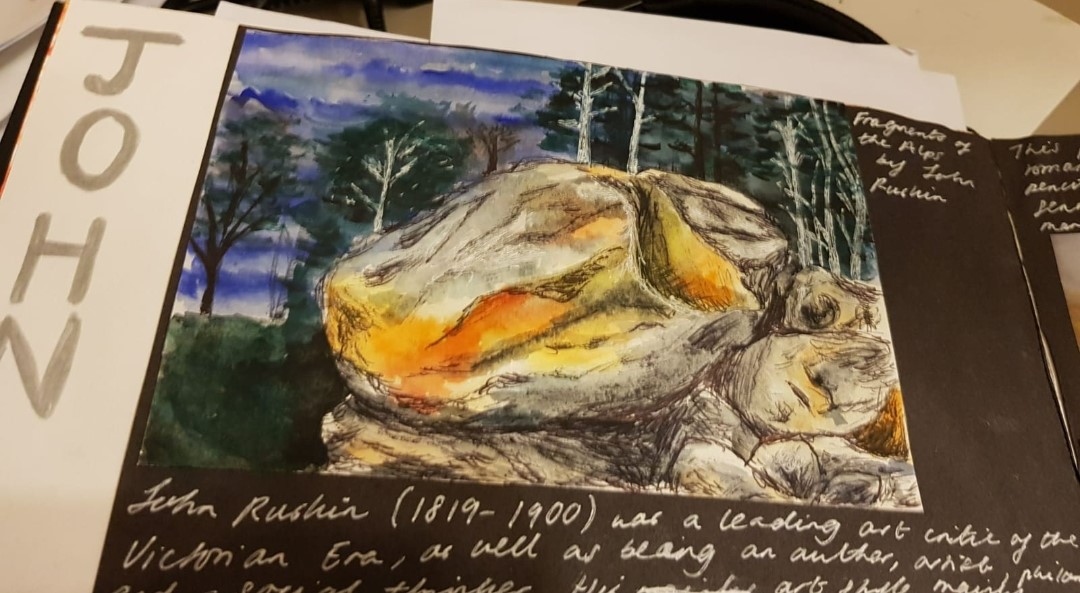 JOHN
Fragments of
the Alps
by John
Rushin
This
John Rushin (1819-1900) was a leading art critic of the
Victorian Era, as well as being an author, artist
and a social thinker. His art style mainly